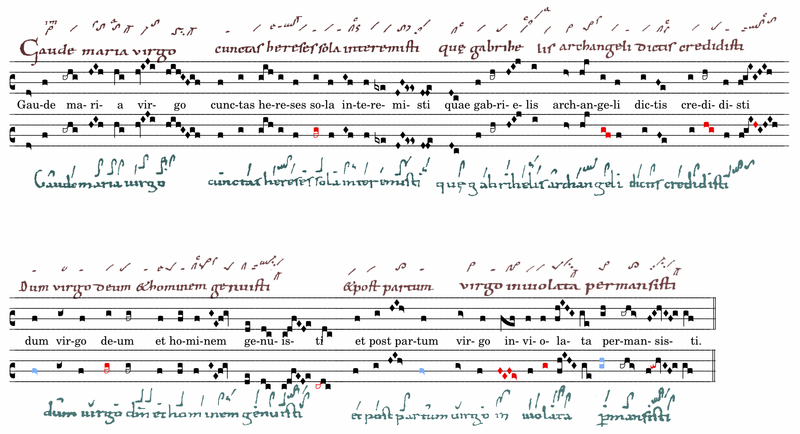 Gaude maria virgo cunctas hereses sola interemisti quę gabrihe lis archangeli dictis credidisti
Gau-de ma-ri-a vir-go cunc-tas he-re-ses so-la in-te-re-mi-sti quae gab-ri-e-lis arch-an-ge-li dic-tis cre-di-di-sti
Gaude maria virgo cunctas hereses sola interemisti quę gabrihelis archangeli dictis credidisti
Dum virgo deum & hominem genuisti & post partum virgo inuiolata permansisti
dum vir-go de-um et ho-mi-nem ge-nu-is-ti et post par-tum vir-go in-vi-o-la-ta per-man-sis-ti.
dum uirgo dm̄ et hominem genuisti et post partum uirgo in uiolata p̱mansisti